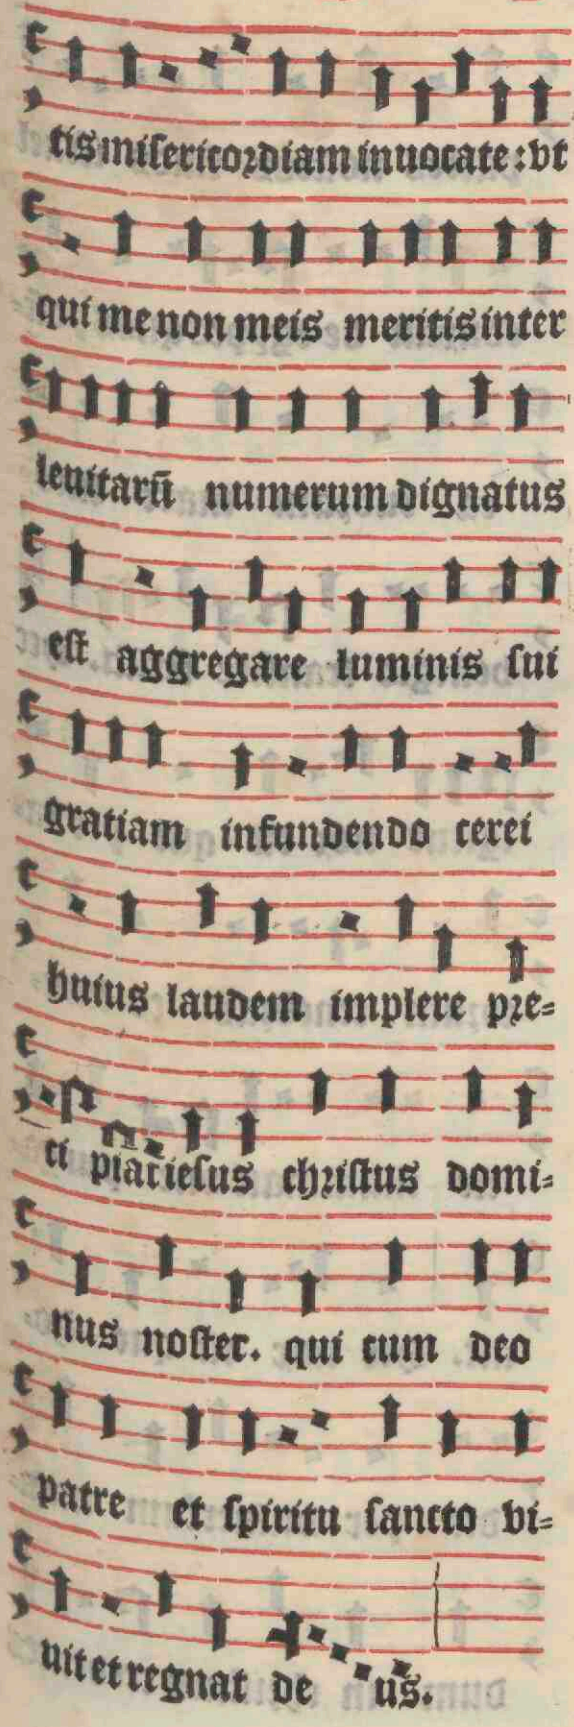 tis misericordiam inuocate: vt
qui me non meis meritis inter
leuitarū numerum dignatus
est aggregare luminis sui
gratiam infundendo cerei
huius laudem implere pre-
ci piat iesus christus domi-
nus noster. qui cum deo
patre et spiritu sancto vi-
uit et regnat de us.